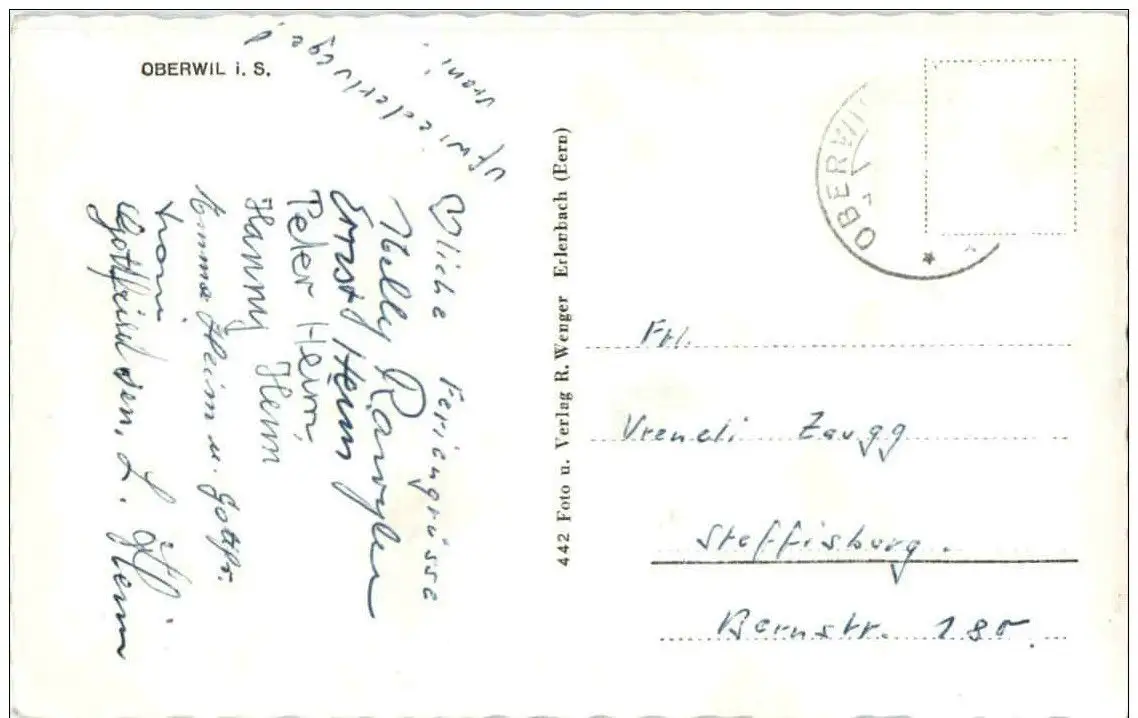 OBERWIL i. S.
Ufwiederlugge
Vreni
♡liche Feriengrüsse
Nelly
Ernst Heim
Peter Heim,
Hanny Heim
Emma Heim u. Gottfr.
Vroni
Gottfried sen. L. Heim
442 Foto u. Verlag R. Wenger Erlenbach (Bern)
OBERWIL
Frl.
Vreneli Zaugg
Steffisburg.
Bernstr. 185.